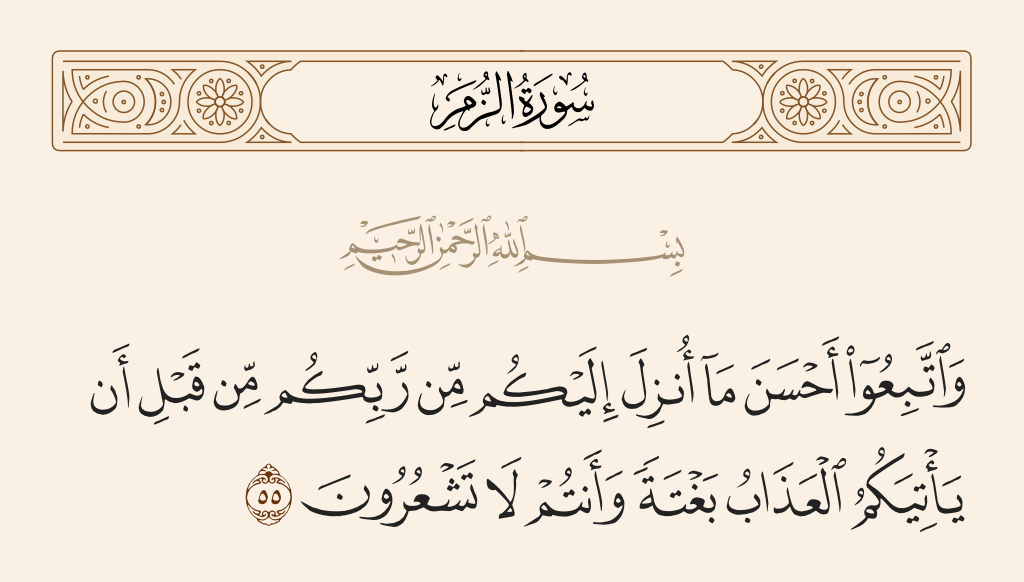 سُورَةُ الزُّمَرِ
بِسْمِ ٱللَّهِ ٱلرَّحْمَٰنِ ٱلرَّحِيمِ
وَٱتَّبِعُوٓا۟ أَحْسَنَ مَآ أُنزِلَ إِلَيْكُم مِّن رَّبِّكُم مِّن قَبْلِ أَن
يَأْتِيَكُمُ ٱلْعَذَابُ بَغْتَةً وَأَنتُمْ لَا تَشْعُرُونَ ٥٥